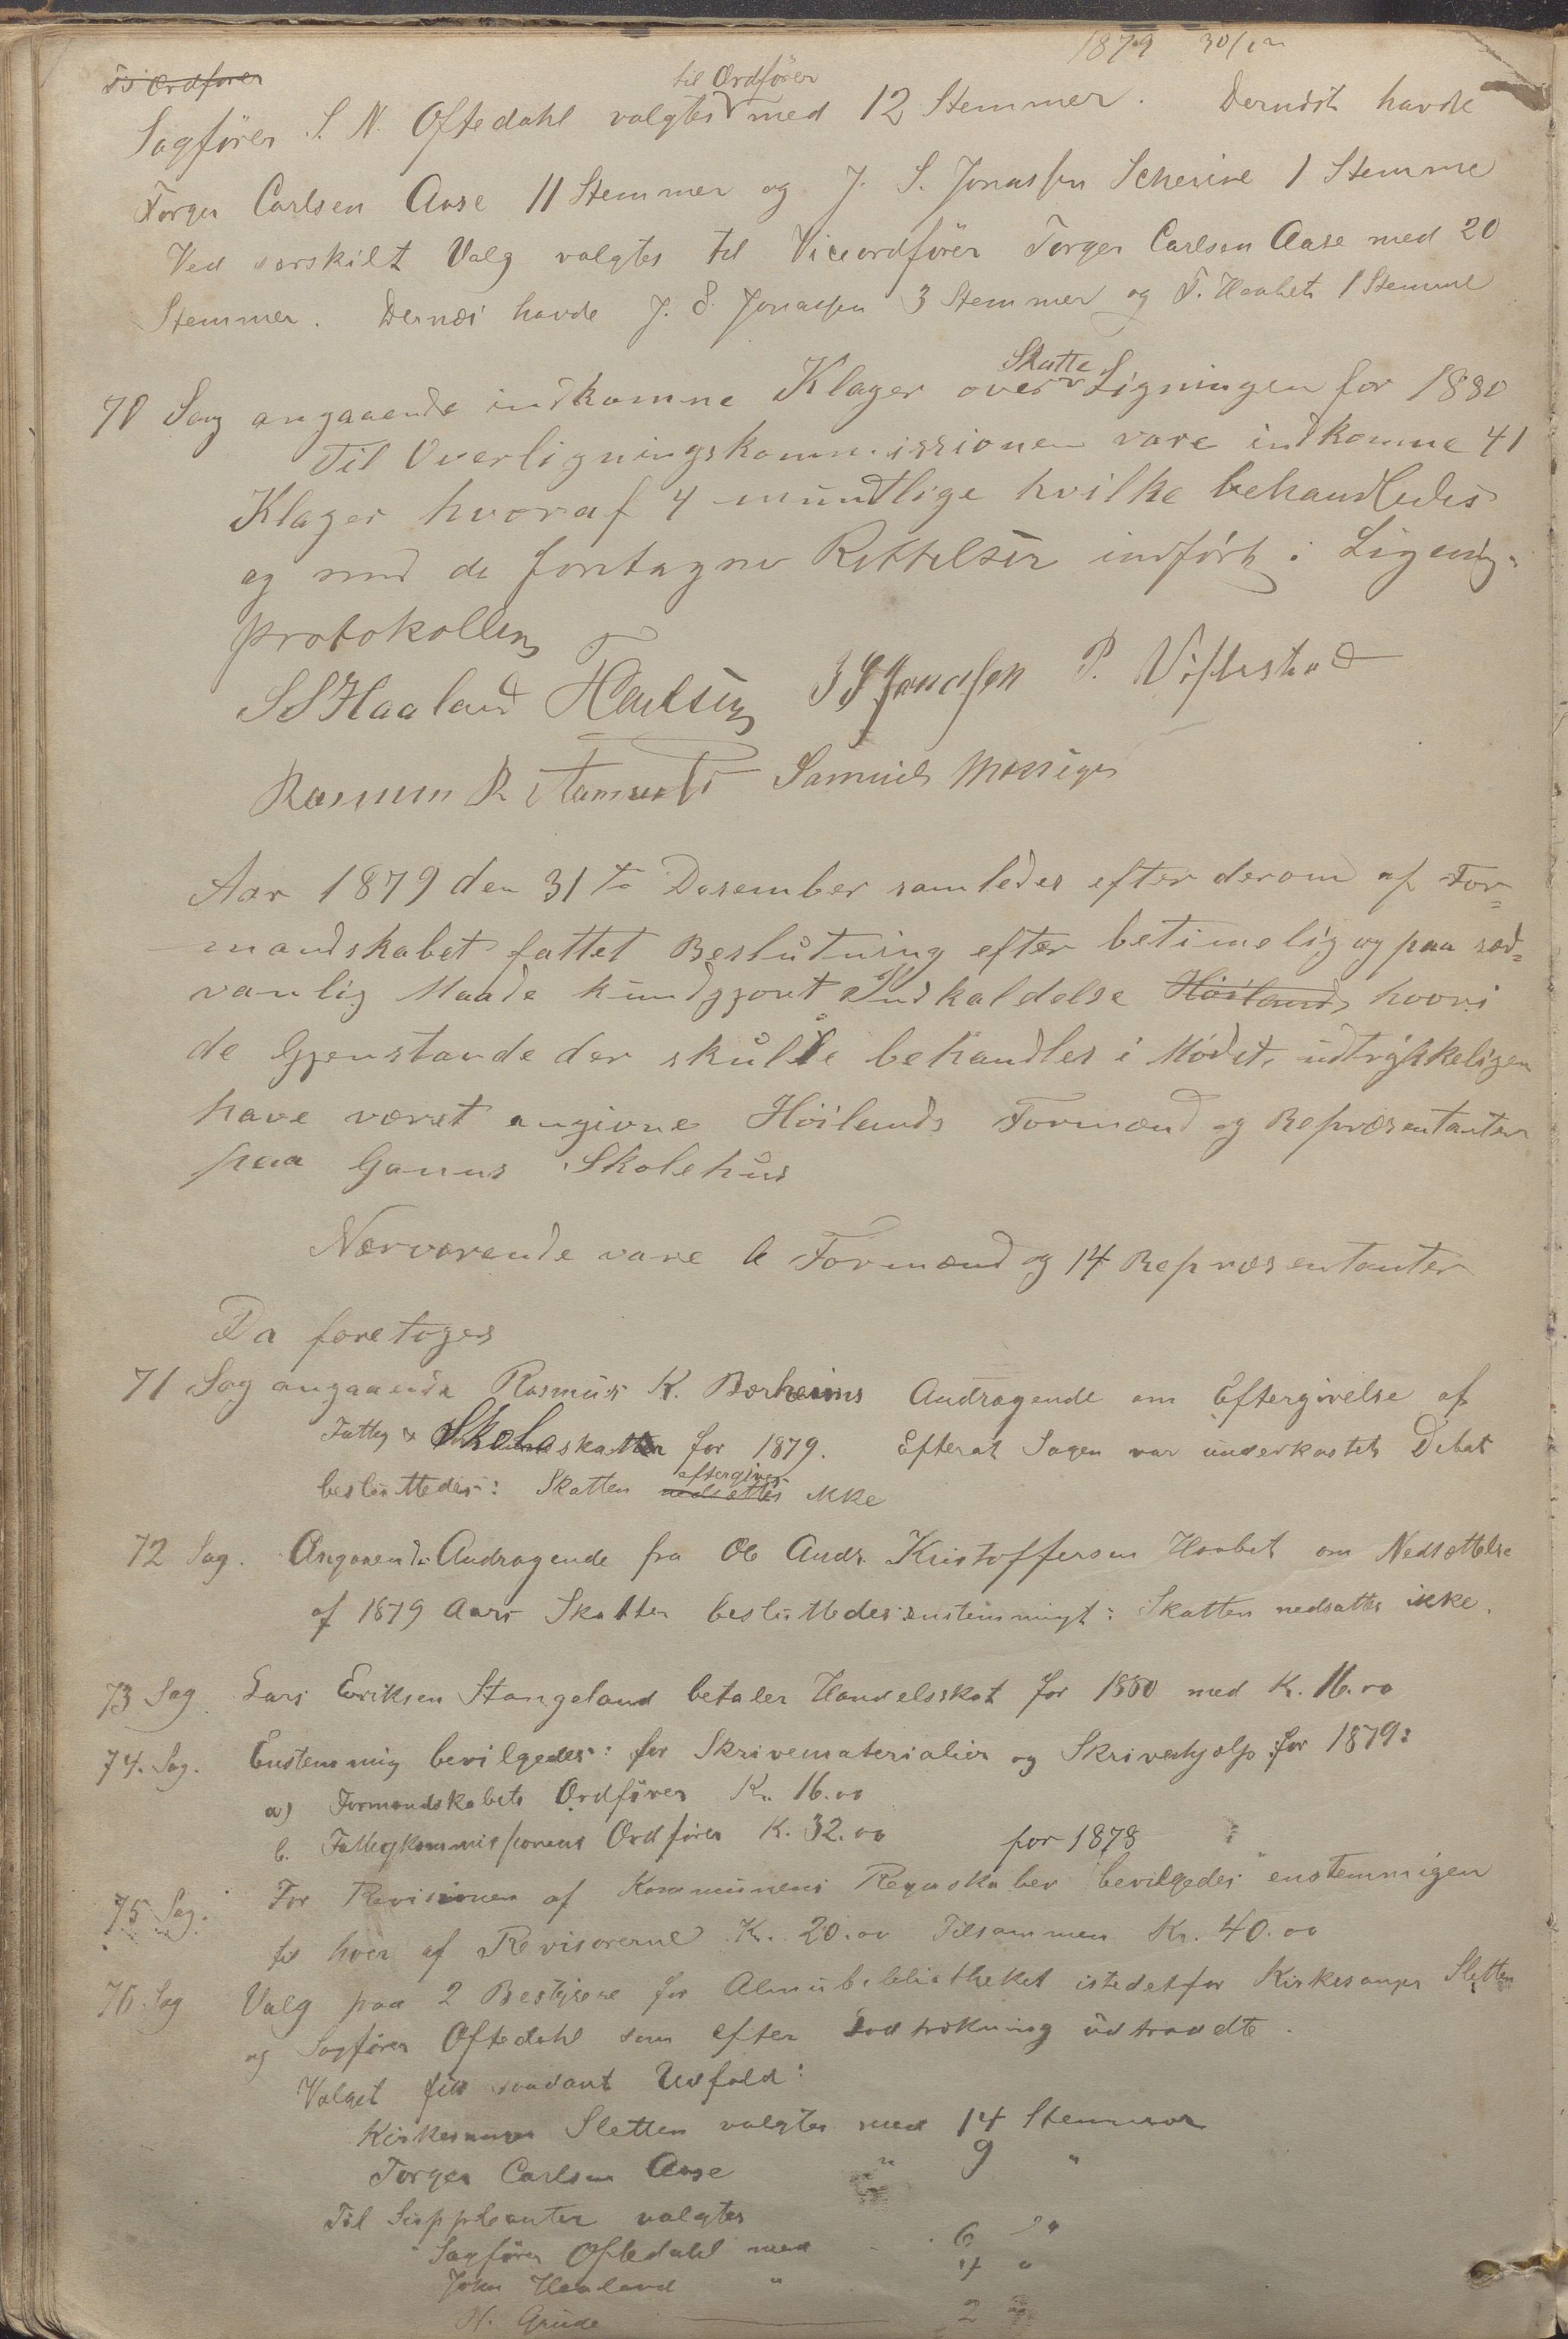 1879 30/12
til Ordfører
Sagfører S. N. Oftedahl valgtes med 12 Stemmer. Dernæst havde
Torger Carlsen Aase 11 Stemmer og J. S. Jonassen Scheine 1 Stemme
Ved særskilt Valg valgtes til Viceordfører Torger Carlsen Aase med 20
Stemmer. Dernæst havde J. S. Jonassen 3 Stemmer og T. Haabet 1 Stemme
Skatte
70 Sag angaaende indkomne Klager over Ligningen for 1880
Til Overligningskommissionen vare indkomne 41
Klager hvoraf 4 mundtlige hvilke behandledes
og med de foretagne Rettelser indført i Lignings
protokollen
S S Haaland T Carlsen J S Jonassen P. Vistestad
Rasmus R Samuel
Aar 1879 den 31te Desember samledes efter derom af For=
mandskabet fattet Beslutning efter betimelig og paa sæd=
vanlig Maade kundgjoret Indkaldelse Høilands hvori
de Gjenstande der skulle behandles i Mødet, udtrykkeligen
have været angivne Høilands Formænd og Repræsentanter
paa Ganns Skolehus
Nærværende vare 6 Formænd og 14 Repræsentanter
Da foretoges
71 Sag angaaende Rasmus K. Borheims Andragende om Eftergivelse af
Fattig & Skoleskatten for 1879. Efterat Sagen var underkastet Debat
eftergives
besluttedes: Skatten nedsættes ikke
72 Sag. Angaaende Andragende fra Ole Andr. Kristoffersen Haabet om Nedsættelse
af 1879 Aars Skatter besluttedes enstemmigt: Skatten nedsattes ikke.
73 Sag Lars Eeriksen Stangeland betaler Handelsskat for 1880 med K. 16.00
74. Sag. Enstemmig bevilgedes: for Skrivematerialier og Skrivehjælp for 1879:
a) Formandskabets Ordfører Kr. 16.00
b. Fattigkommissionens Ordfører K. 32.00
for 1878
75 Sag. For Revisionen af Kommunens Regnskaber bevilgedes enstemmigen
til hver af Revisorerne Kr. 20.00 Tilsammen Kr. 40.00
76. Sag Valg paa 2 Bestyrere for Almubibliotheket istedetfor Kirkesanger Sletten
og Sagfører Oftedahl som efter Lodtrækning udtraadte.
Valget fik saadant Udfald:
Kirkesanger Sletten valgtes med 14 Stemmer
Torger Carlsen Aase " 9 "
Til Suppleanter valgtes
Sagfører Oftedahl med 6 "
John Haaland " 4 "
H. Grude 2